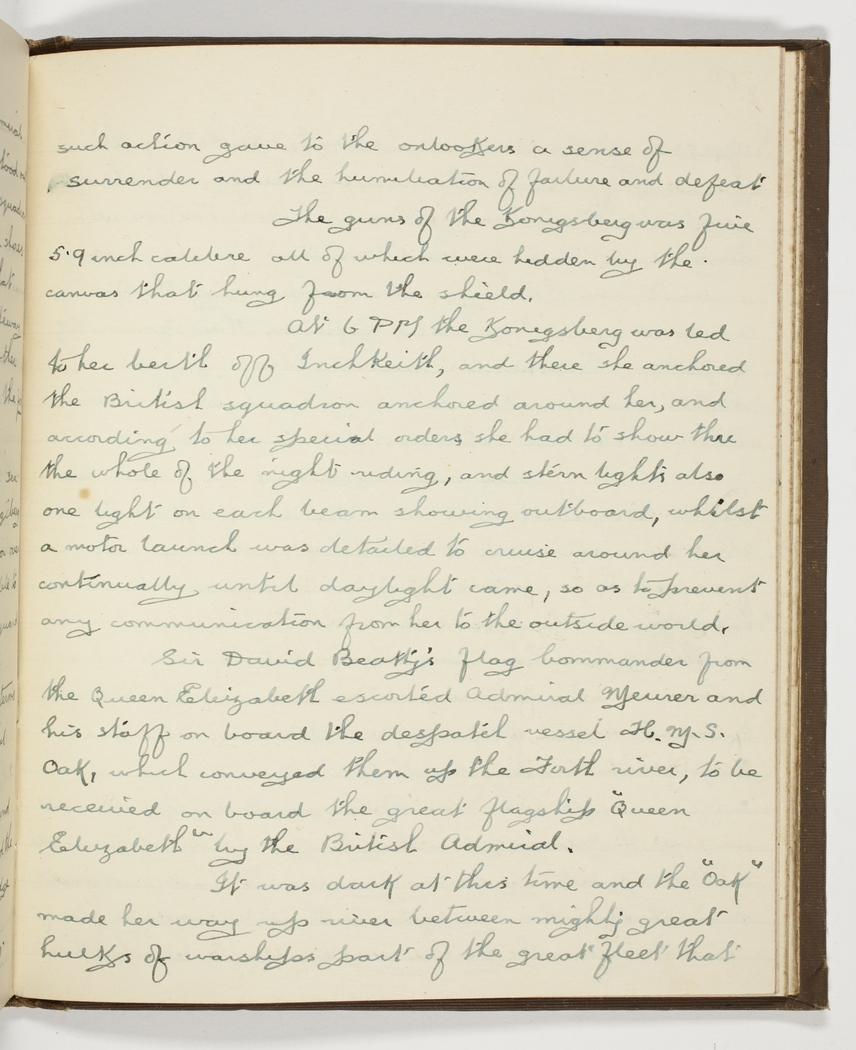 such action gave to the onlookers a sense of
surrender and the humiliation of failure and defeat
The guns of the Konigsberg was five
5.9 inch calibre all of which were hidden by the
canvas that hung from the shield.
At 6 PM the Konigsberg was led
to her berth off InchKeith, and there she anchored
the British squadron anchored around her, and
according to her special orders she had to show thru
the whole of the night riding, and stern lights also
one light on each beam showing outboard, whilst
a motor launch was detailed to cruise around her
continually until daylight came, so as to prevent
any communication from her to the outside world.
Sir David Beatty's flag Commander from
the Queen Elizabeth escorted Admiral Meurer and
his staff on board the despatch vessel H.M.S.
Oak, which conveyed them up the Forth river, to be
received on board the great flagship "Queen
Elizabeth" by the British Admiral.
It was dark at this time and the "Oak"
made her way up river between mighty great
hulks of warships part of the great fleet that